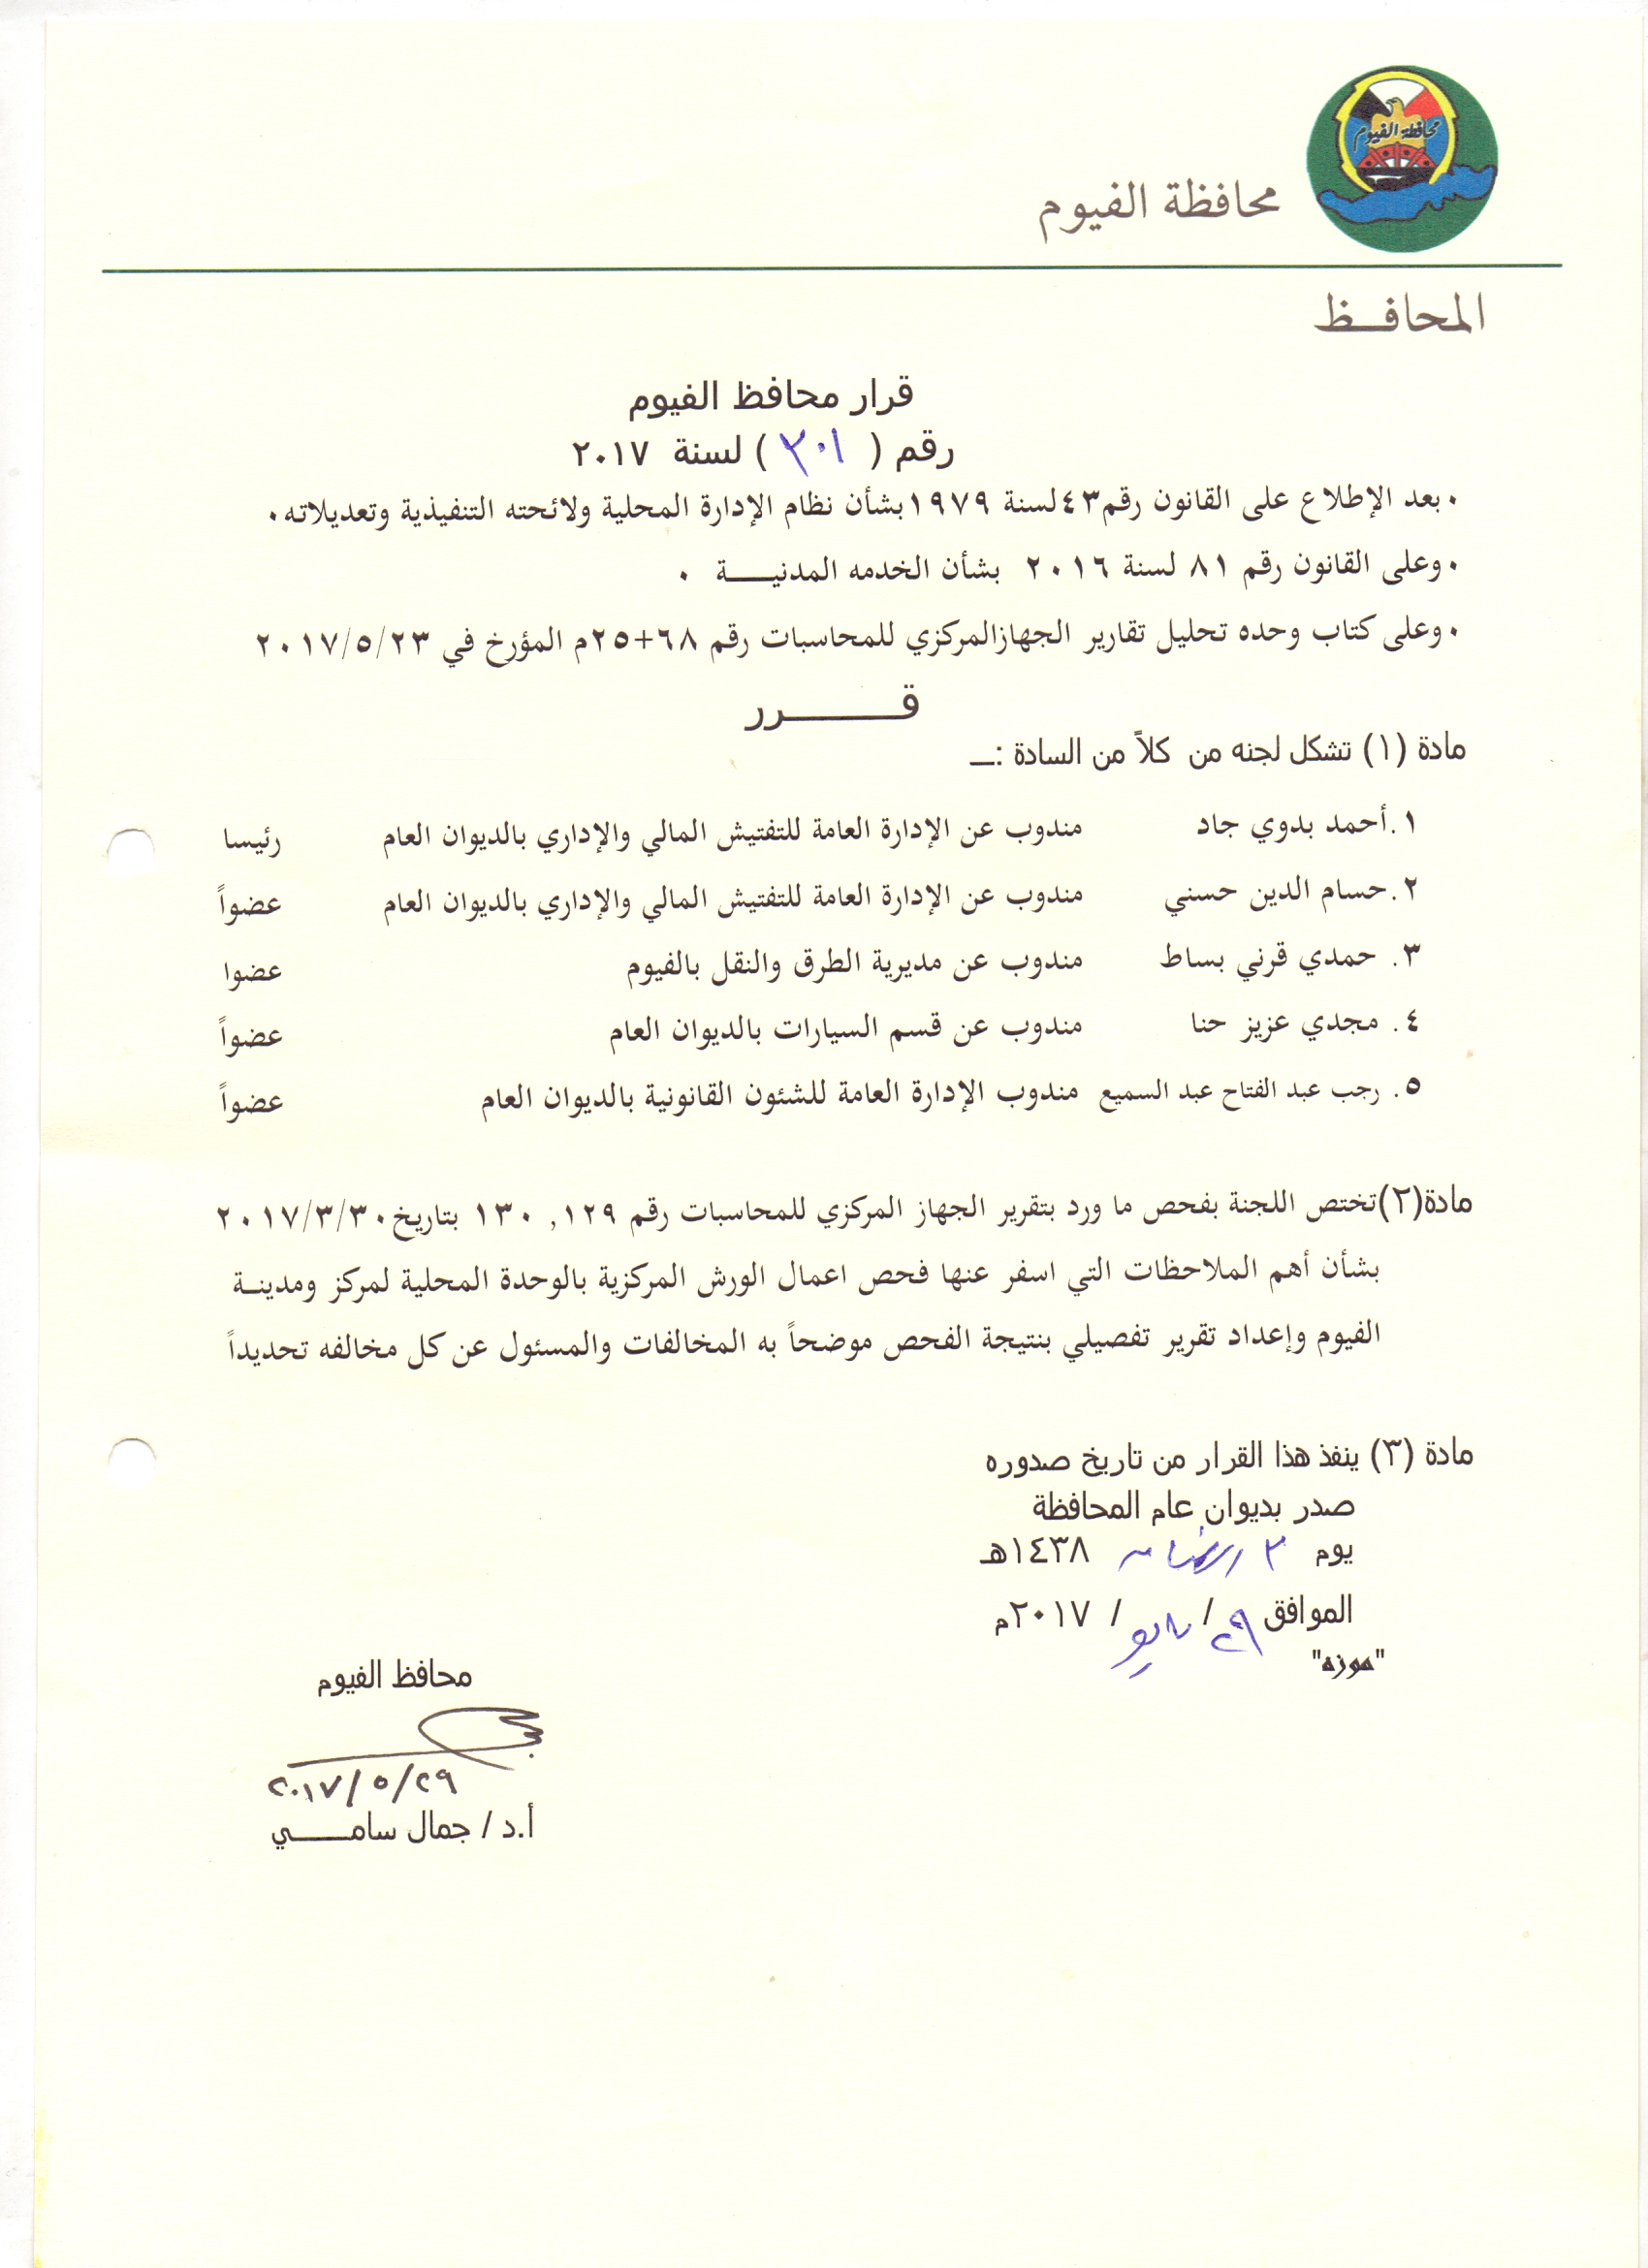 محافظة الفيوم
محافظة الفيوم
المحافـــظ
قرار محافظ الفيوم
رقم ( ٣٠١ ) لسنة ٢٠١٧
• بعد الإطلاع على القانون رقم٤٣لسنة ١٩٧٩بشأن نظام الإدارة المحلية ولائحته التنفيذية وتعديلاته٠
• وعلى القانون رقم ٨١ لسنة ٢٠١٦ بشأن الخدمه المدنيــــة ٠
• وعلى كتاب وحده تحليل تقارير الجهازالمركزي للمحاسبات رقم ٦٨+٢٥م المؤرخ في ٢٠١٧/٥/٢٣
قـــــــــرر
مادة (١) تشكل لجنه من كلاً من السادة :ـــ
١.أحمد بدوي جاد مندوب عن الإدارة العامة للتفتيش المالي والإداري بالديوان العام رئيسا
٢.حسام الدين حسني مندوب عن الإدارة العامة للتفتيش المالي والإداري بالديوان العام عضواً
٣. حمدي قرني بساط مندوب عن مديرية الطرق والنقل بالفيوم عضوا
٤. مجدي عزيز حنا مندوب عن قسم السيارات بالديوان العام عضواً
٥. رجب عبد الفتاح عبد السميع مندوب الإدارة العامة للشئون القانونية بالديوان العام عضواً
مادة(٢)تختص اللجنة بفحص ما ورد بتقرير الجهاز المركزي للمحاسبات رقم ١٢٩, ١٣٠ بتاريخ٢٠١٧/٣/٣٠
بشأن أهم الملاحظات التي اسفر عنها فحص اعمال الورش المركزية بالوحدة المحلية لمركز ومدينــة
الفيوم وإعداد تقرير تفصيلي بنتيجة الفحص موضحاً به المخالفات والمسئول عن كل مخالفه تحديداً
مادة (٣) ينفذ هذا القرار من تاريخ صدوره
صدر بديوان عام المحافظة
يوم ٣ رمضان ١٤٣٨هـ
الموافق ٢٩/ مايو/ ٢٠١٧م
"موزه"
محافظ الفيوم
٢٠١٧/٥/٢٩
أ.د / جمال سامـــــي